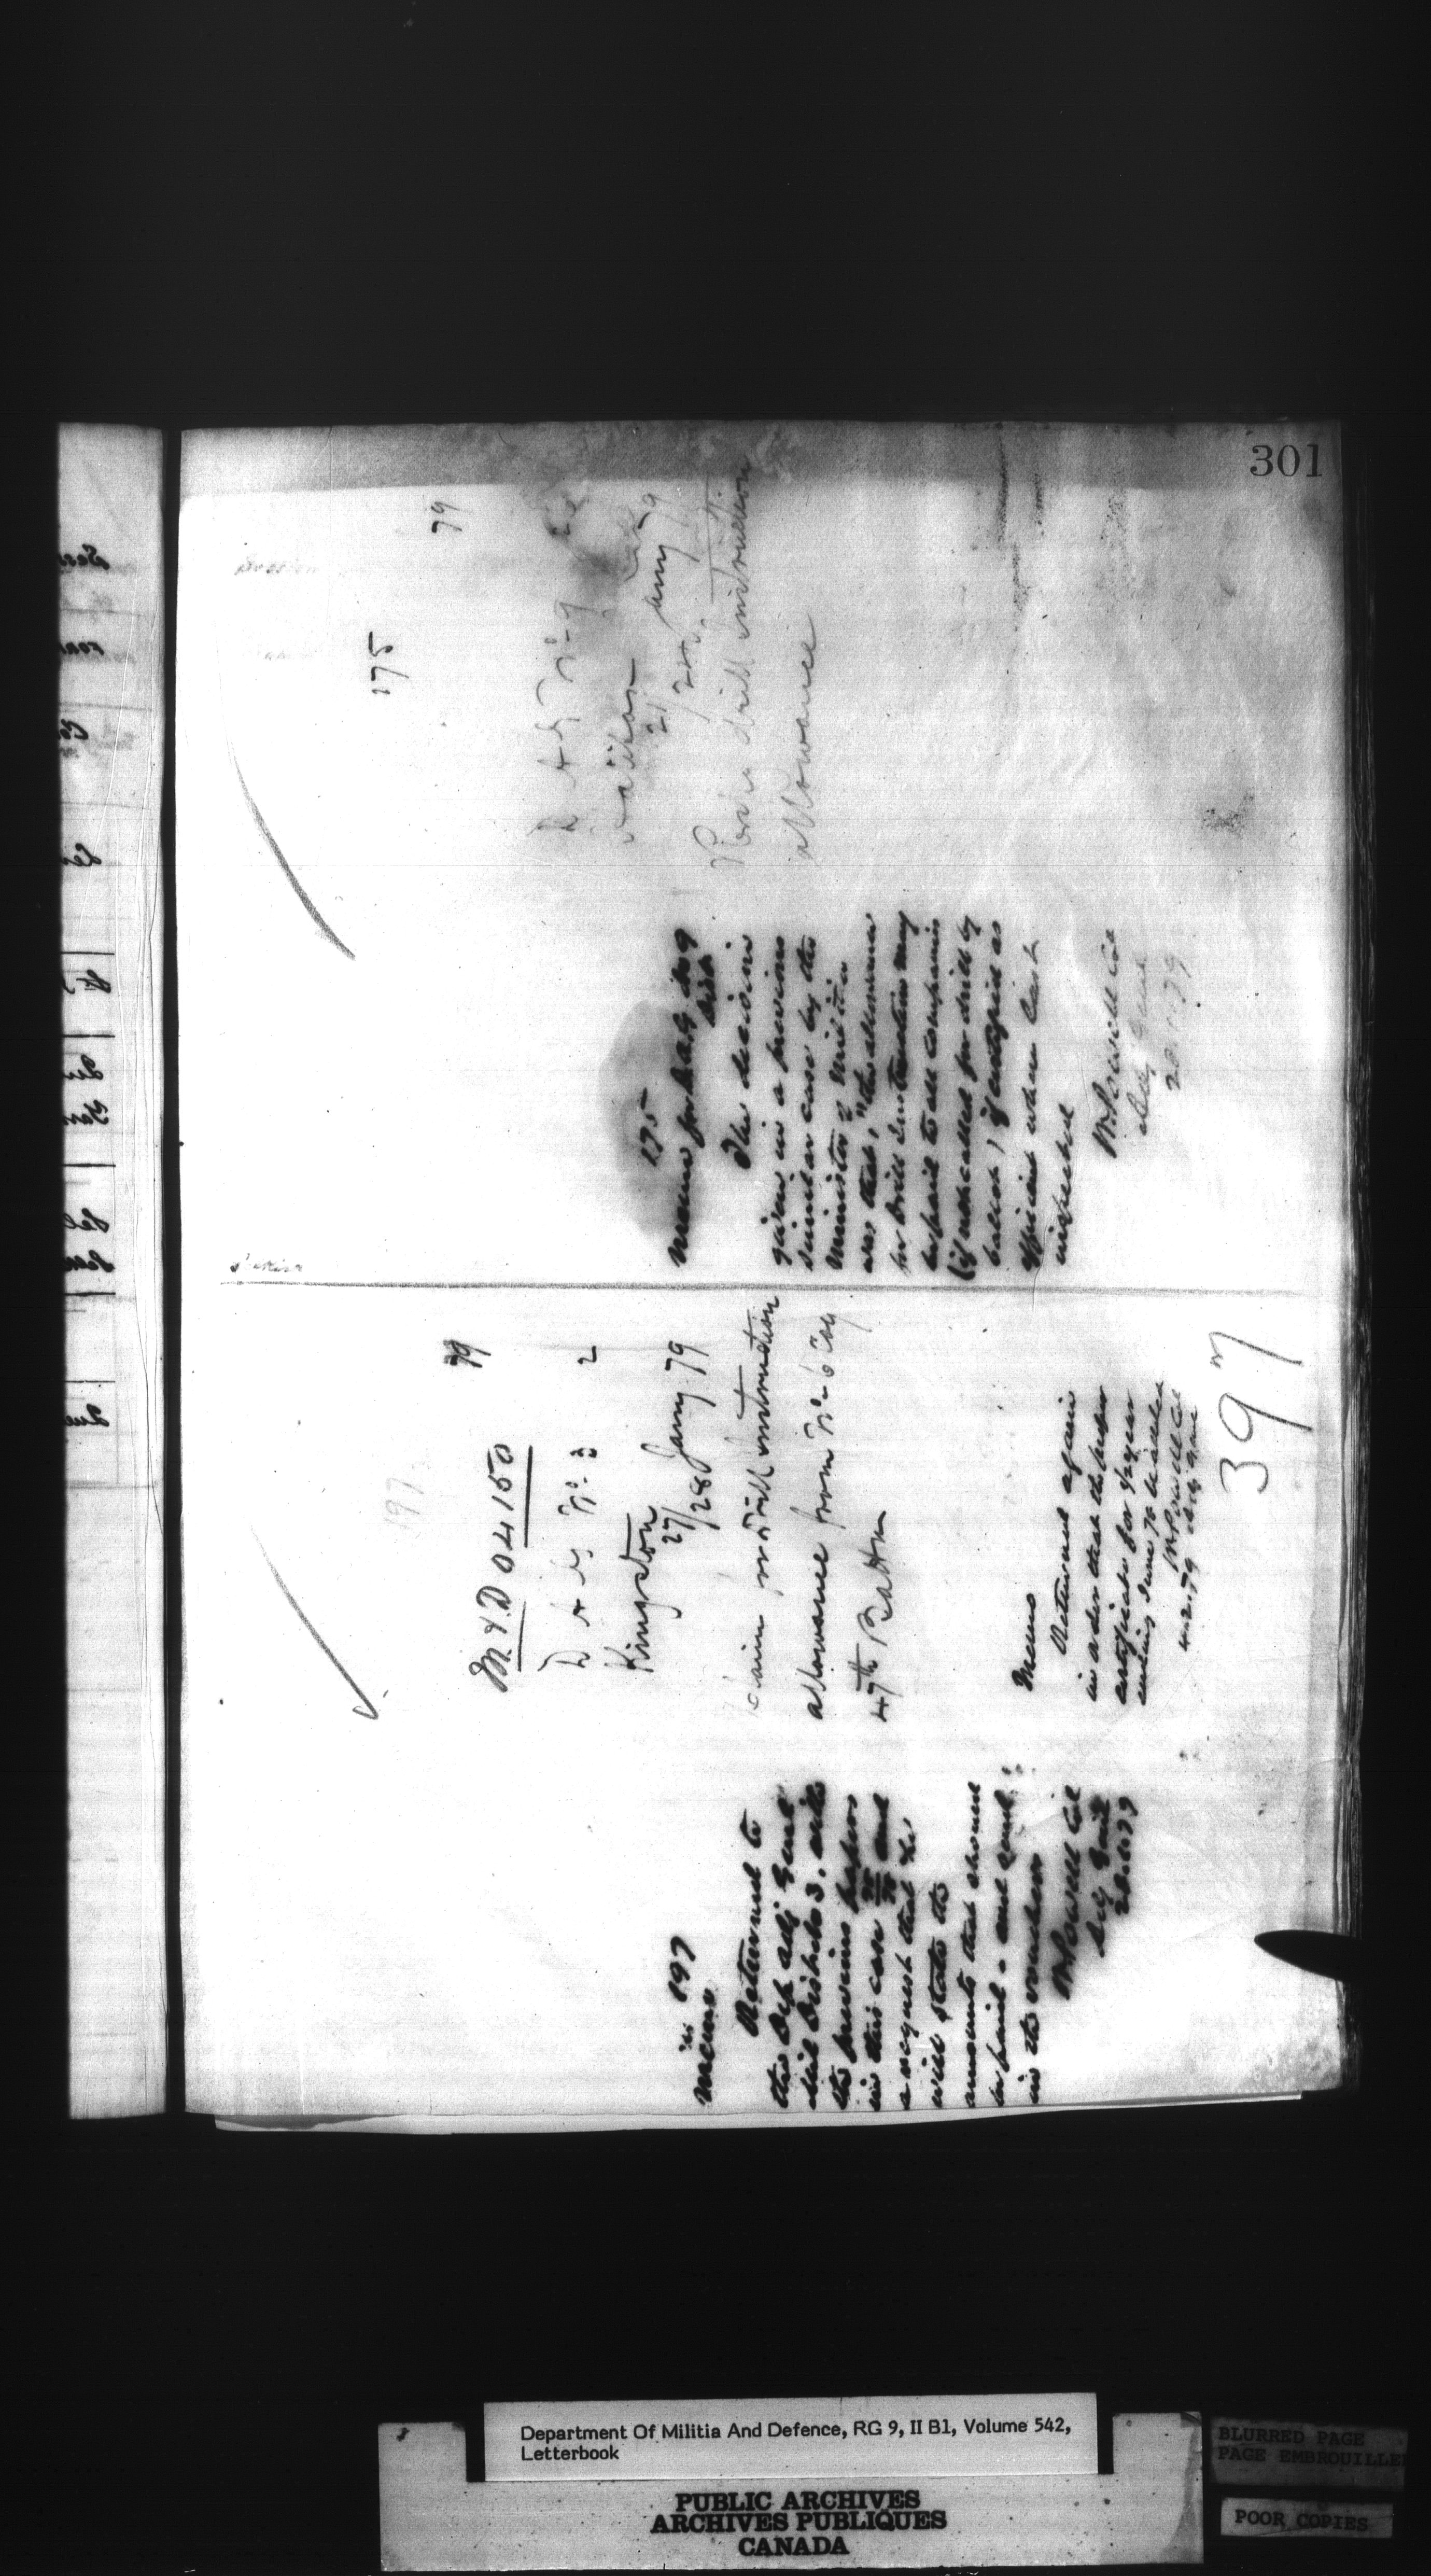 301
197
M & D 04150 79
D A G No. 3 2
Kingston
27/28 Jany 79
Claim for drill instruction
allowance from No. 6 Coy
47th Battn
in 197
Memo
Returned to
the Dep. Adj. Genl
Mil District 3. with
the previous papers
in this case and
a request that he
will state the
amounts that should
be paid - and send
in the vouchers
W Powell Col
28.1.79
Memo
Returned again
in order that the
certificate for year
ending June 78 be added
W Powell Col
4.2.79
397
175
79
D A G No. 9
Halifax
21/24 Jany 79
Re drill instruction
allowance
175
Memo for D.A.G. No 9
Dist
The decision
given in a previous
similar case by the
Minister of Militia
was that, "the allowance
for Drill Instruction may
be paid to all companies
(if not called for drill by
ballot) if certified as
efficient when last
inspected
W Powell Col
Adj Genl
28.1.79
Department Of Militia And Defence, RG 9, II B1, Volume 542,
Letterbook
PUBLIC ARCHIVES
ARCHIVES PUBLIQUES
CANADA
BLURRED PAGE
PAGE EMBROUILLE
POOR COPIES